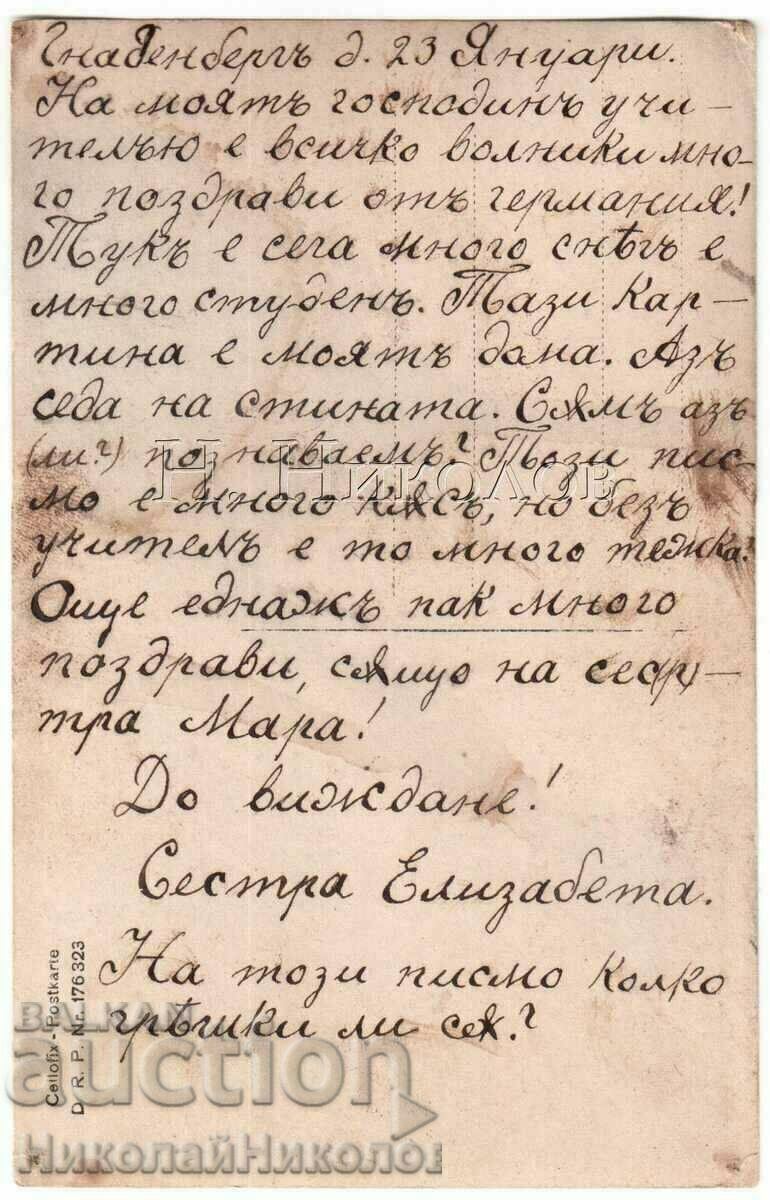 Гнаденбергъ д. 23 Януари.
На моятъ господинъ учи-
телъю е всичко волники мно-
го поздрави отъ германия!
Тукъ е сега много снѣгъ е
много студенъ. Тази кар-
тина е моятъ дома. Азъ
седа на стината. Сѫмъ азъ
(ли?) познаваемъ? Този пис-
мо е много кѫсъ, но безъ
учителъ е то много тежка!
Още еднажъ пак много
поздрави, сѫщо на сес(т)-
тра Мара!
До виждане!
Сестра Елизабета.
На този писмо колко
грѣшки ли сѫ?
Cellofix - Postkarte
D. R. P. Nr. 176 323
Н. Николов
BALKAN
auction
НиколайНиколов